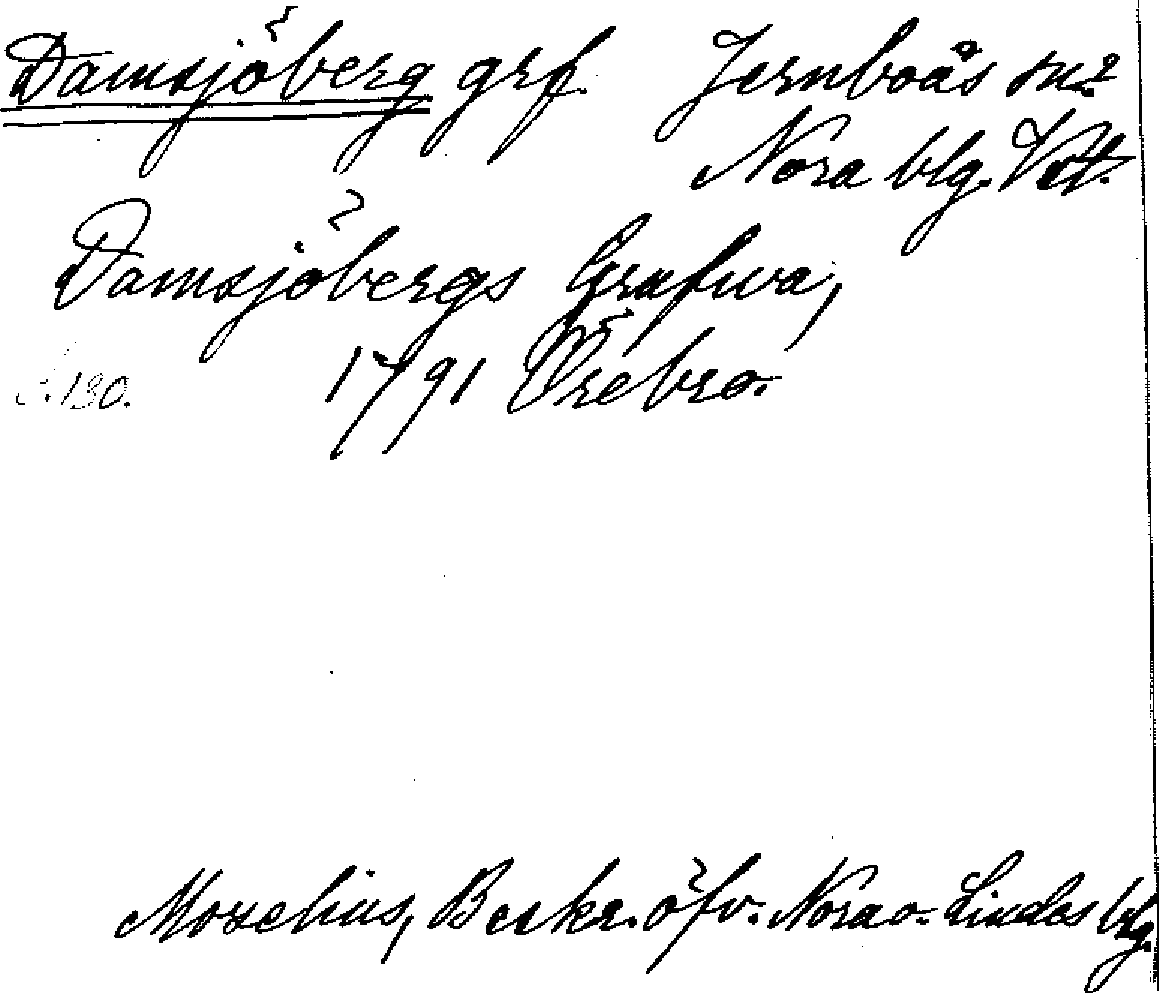 Damsjöberg grf. Jernboås sn?
Nora blg. Vstm.
Damsjöbergs Grufwa,
s. 130. 1791 Örebro.
Moxelius, Beskr. öfv. Nora o. Lindes blg.